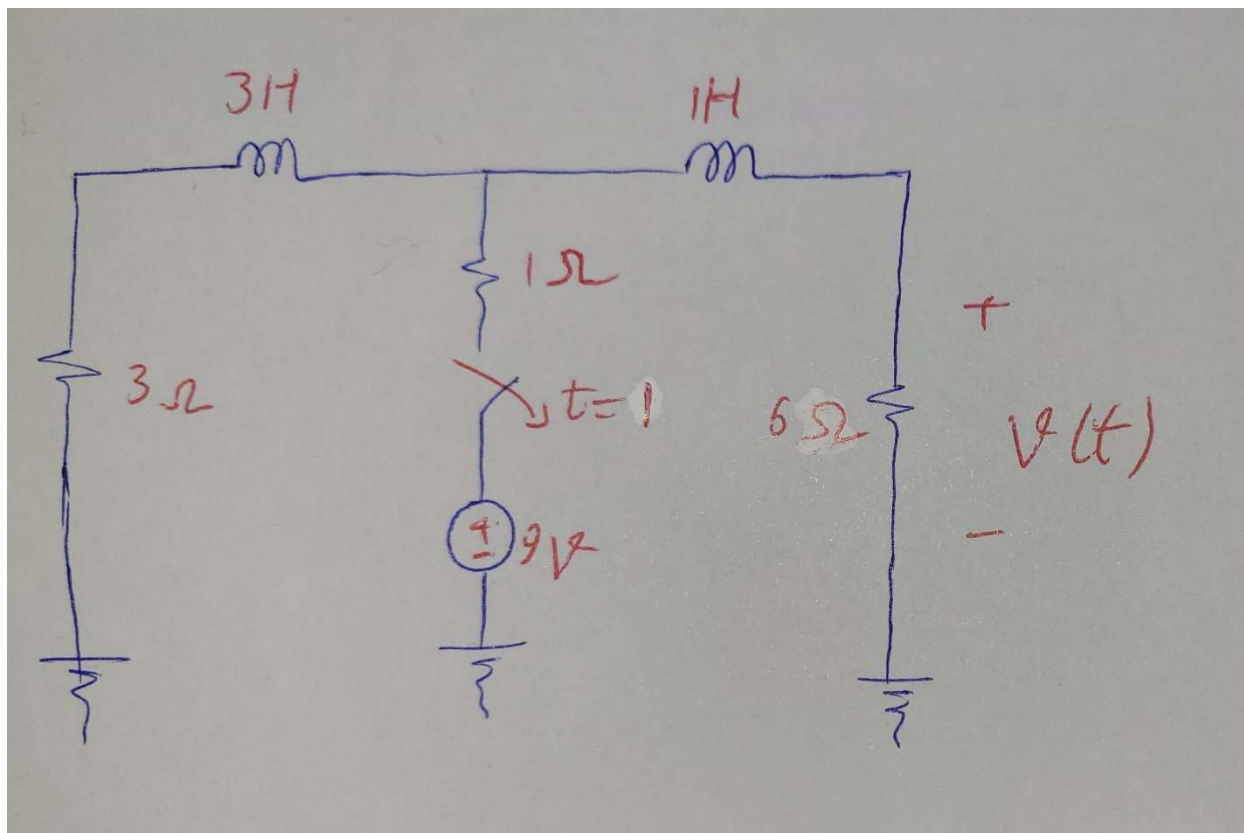 3H
1H
1Ω
3Ω
t=1
6Ω
+
v(t)
-
+
-
9V